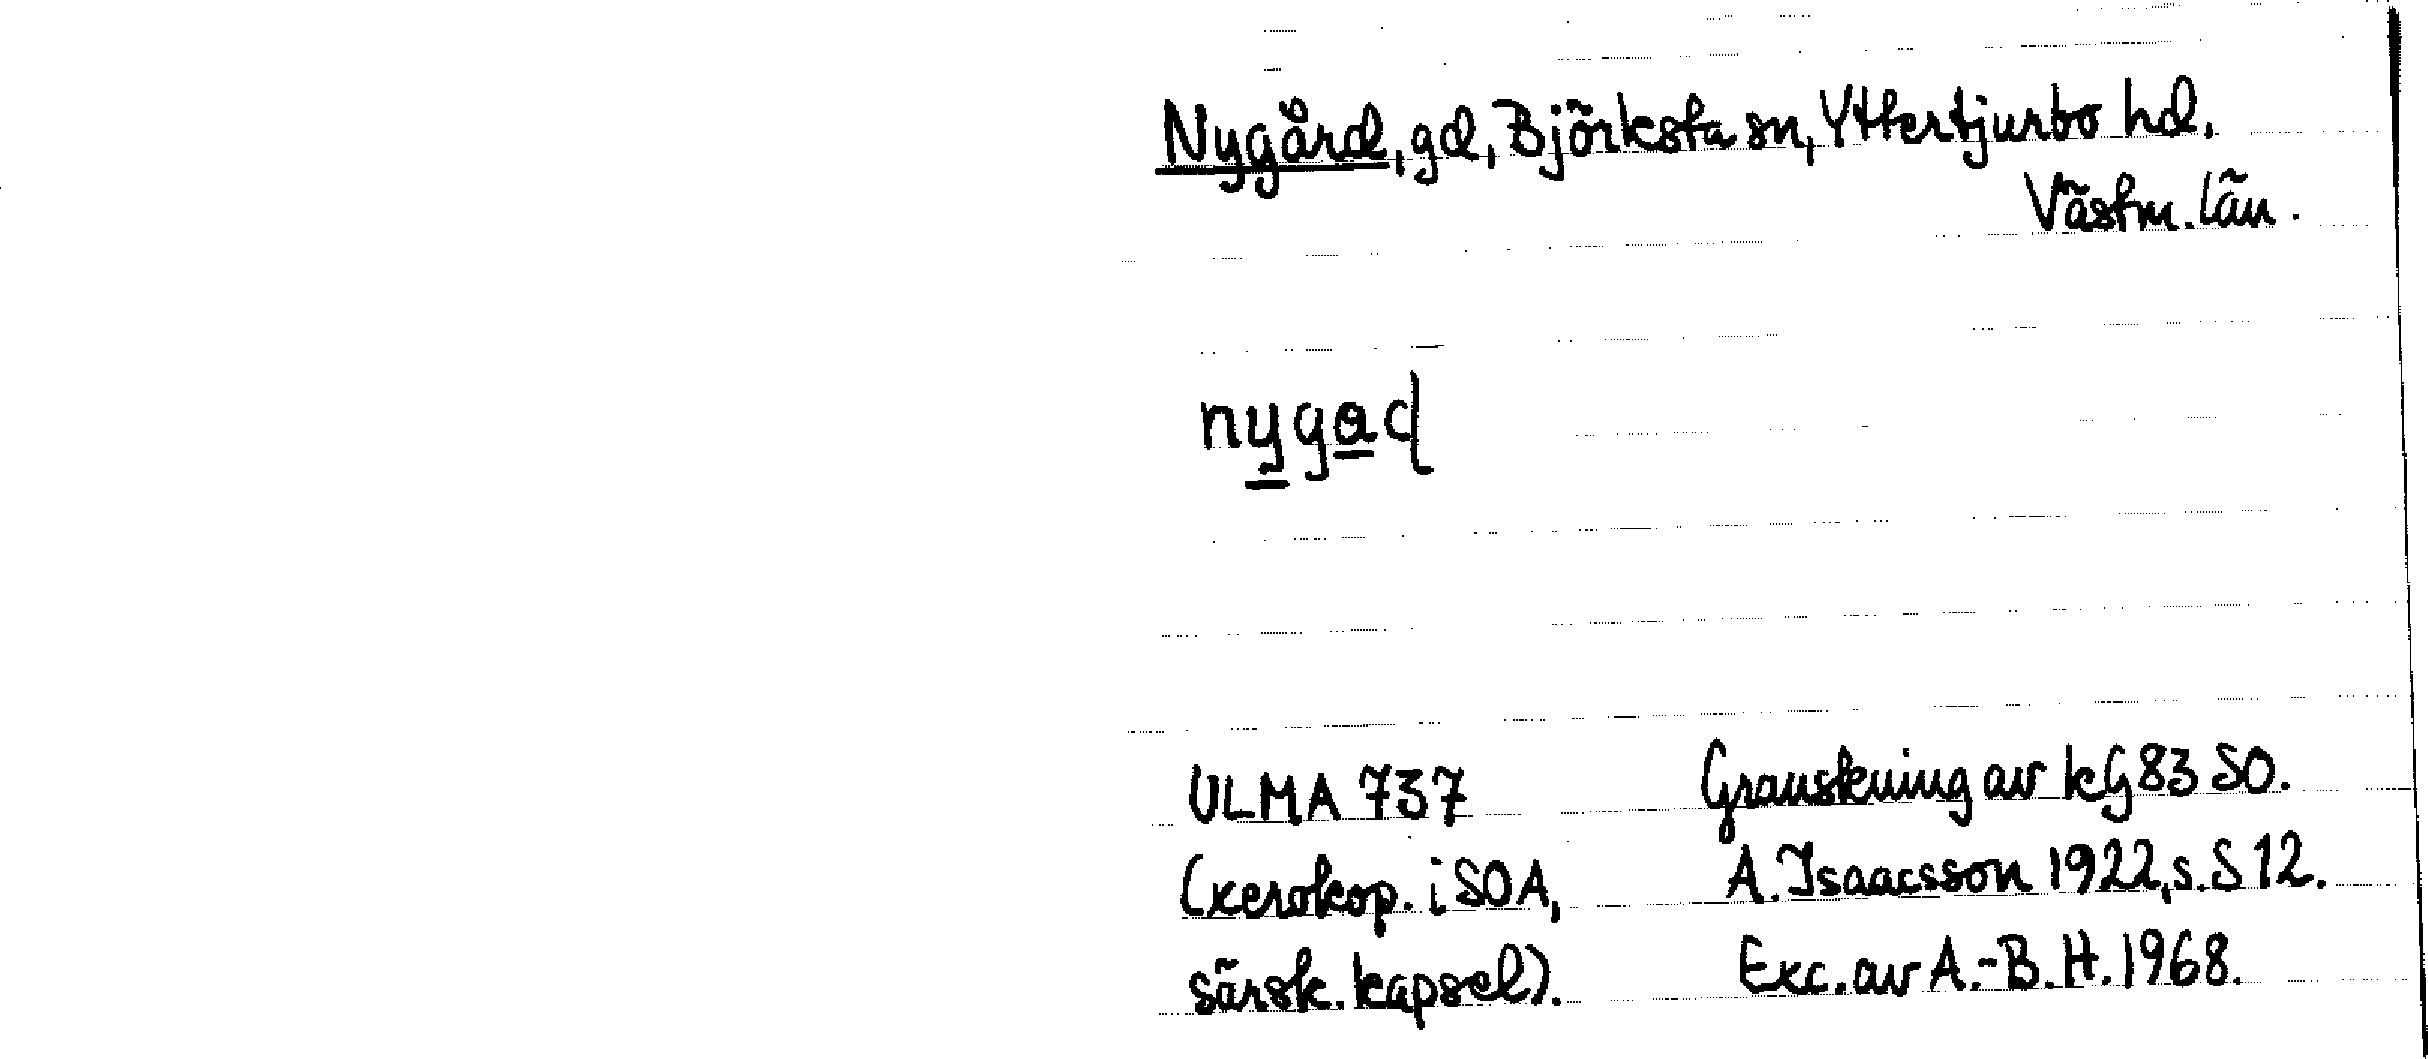 Nygård, gd, Björksta sn, Yttertjurbo hd.
Västm. län.
ULMA 737
Granskning av kG 83 SO.
(xerokop. i SOA,
A. Isaacsson 1922, s. S 12.
särsk. kapsel).
Exc. av A.-B. H. 1968.